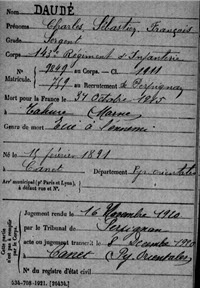 Nom DAUDÉ
Prénoms Charles, Sébastien, François
Grade Sergent
Corps 143e Régiment d'Infanterie
N° 9849 au Corps. — Cl. 1911
Matricule. 779 au Recrutement de Perpignan
Mort pour la France le 31 Octobre 1915
à Tahure (Marne)
Genre de mort Tué à l'ennemi
Né le 15 février 1891
à Canet Département Pyr. Orientales
Arrt municipal (pr Paris et Lyon),
à défaut rue et N°.
Cette partie
n'est pas à remplir
par le Corps.
Jugement rendu le 16 Novembre 1920
par le Tribunal de Perpignan
acte ou jugement transcrit le 8 Décembre 1920
à Canet (Py. Orientales)
N° du registre d'état civil
534-708-1921. [26434.]